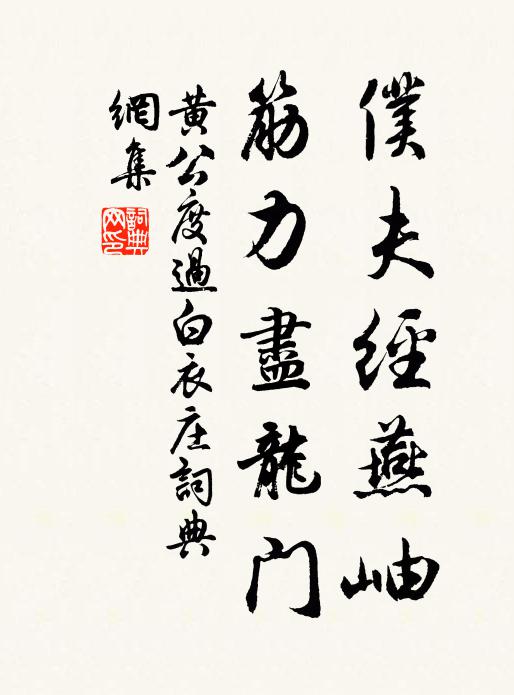 僕夫經燕岫
筋力盡龍門
黄公度過白衣庄詞典
網集
詞典
网印